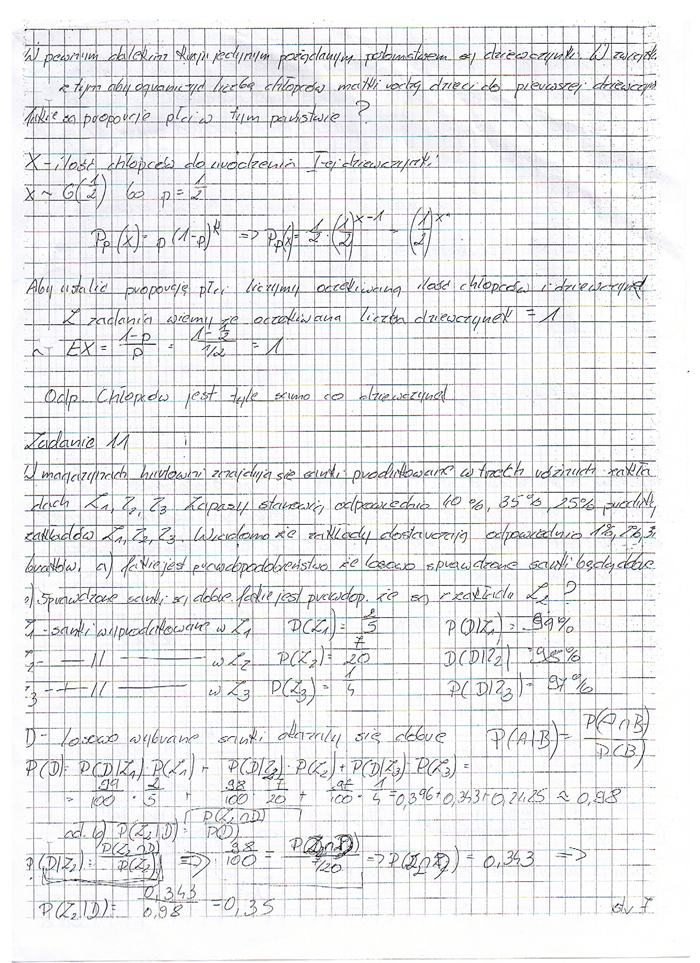 W pewnym dalekim kraju jedynym pożądanym potomstwem są dziewczynki. W związk
z tym aby ograniczyć liczbę chłopców matki rodzą dzieci do pierwszej dziewczyn
Jakie są proporcje płci w tym państwie ?
X - ilość chłopców do urodzenia I-ej dziewczynki
X ~ G(1/2) bo p = 1/2
Pp(X) = p (1-p)^k => Pp(x) = 1/2 · (1/2)^x-1 = (1/2)^x
Aby ustalić proporcję płci liczymy oczekiwaną ilość chłopców i dziewczynek
Z zadania wiemy że oczekiwana liczba dziewczynek = 1
EX = 1-p/p = 1-1/2 / 1/2 = 1
Odp. Chłopców jest tyle samo co dziewczynek
Zadanie 11
W magazynach hurtowni znajdują się sanki produkowane w trzech różnych zakła
dach Z1, Z2, Z3 Zapasy stanowią odpowiednio 40%, 35%, 25% produkc
zakładów Z1, Z2, Z3. Wiadomo że zakłady dostarczają odpowiednio 1%, 2%, 3
braków. a) Jakie jest prawdopodobieństwo że losowo sprawdzone sanki będą dobre
b) Sprawdzone sanki są dobre. Jakie jest prawdop. że są z zakładu Z2 ?
Z1 - sanki wyprodukowane w Z1 P(Z1) = 2/5 P(D|Z1) = 99%
Z2 - — || — w Z2 P(Z2) = 7/20 P(D|Z2) = 98%
Z3 - — || — w Z3 P(Z3) = 1/4 P(D|Z3) = 97%
D - losowo wybrane sanki okazały się dobre P(A|B) = P(A∩B)/P(B)
P(D) = P(D|Z1)·P(Z1) + P(D|Z2)·P(Z2) + P(D|Z3)·P(Z3) =
= 99/100 · 2/5 + 98/100 · 7/20 + 97/100 · 1/4 = 0,396 + 0,343 + 0,2425 ≈ 0,98
ad. b) P(Z2|D) = P(Z2∩D)/P(D)
P(D|Z2) = P(Z2∩D)/P(Z2) => 98/100 = P(Z2∩D)/7/20 => P(Z2∩D) = 0,343 =>
P(Z2|D) = 0,343/0,98 = 0,35